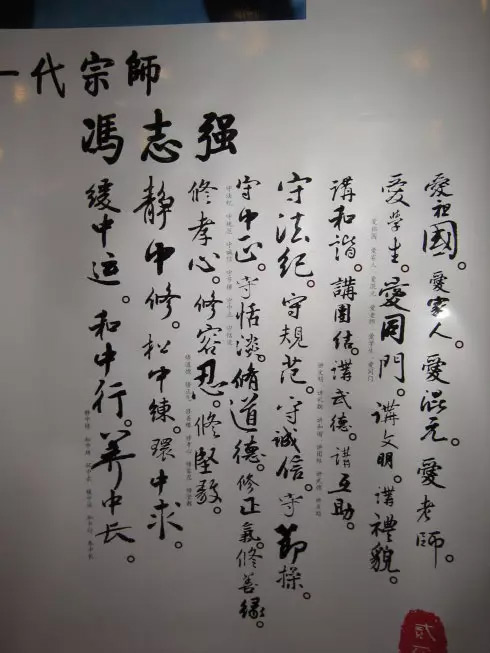 一代宗師
馮志强
愛祖國。愛家人。愛混元。愛老師。
愛學生。愛同門。講文明。講禮貌。
講和諧。講團结。講武德。講互助。
守法紀。守規范。守誠信。守節操。
守中正。守恬淡。脩道德。修正氣。修善緣。
修孝心。修容忍。修堅毅。
靜中修。松中練。環中求。
緩中运。和中行。养中长。